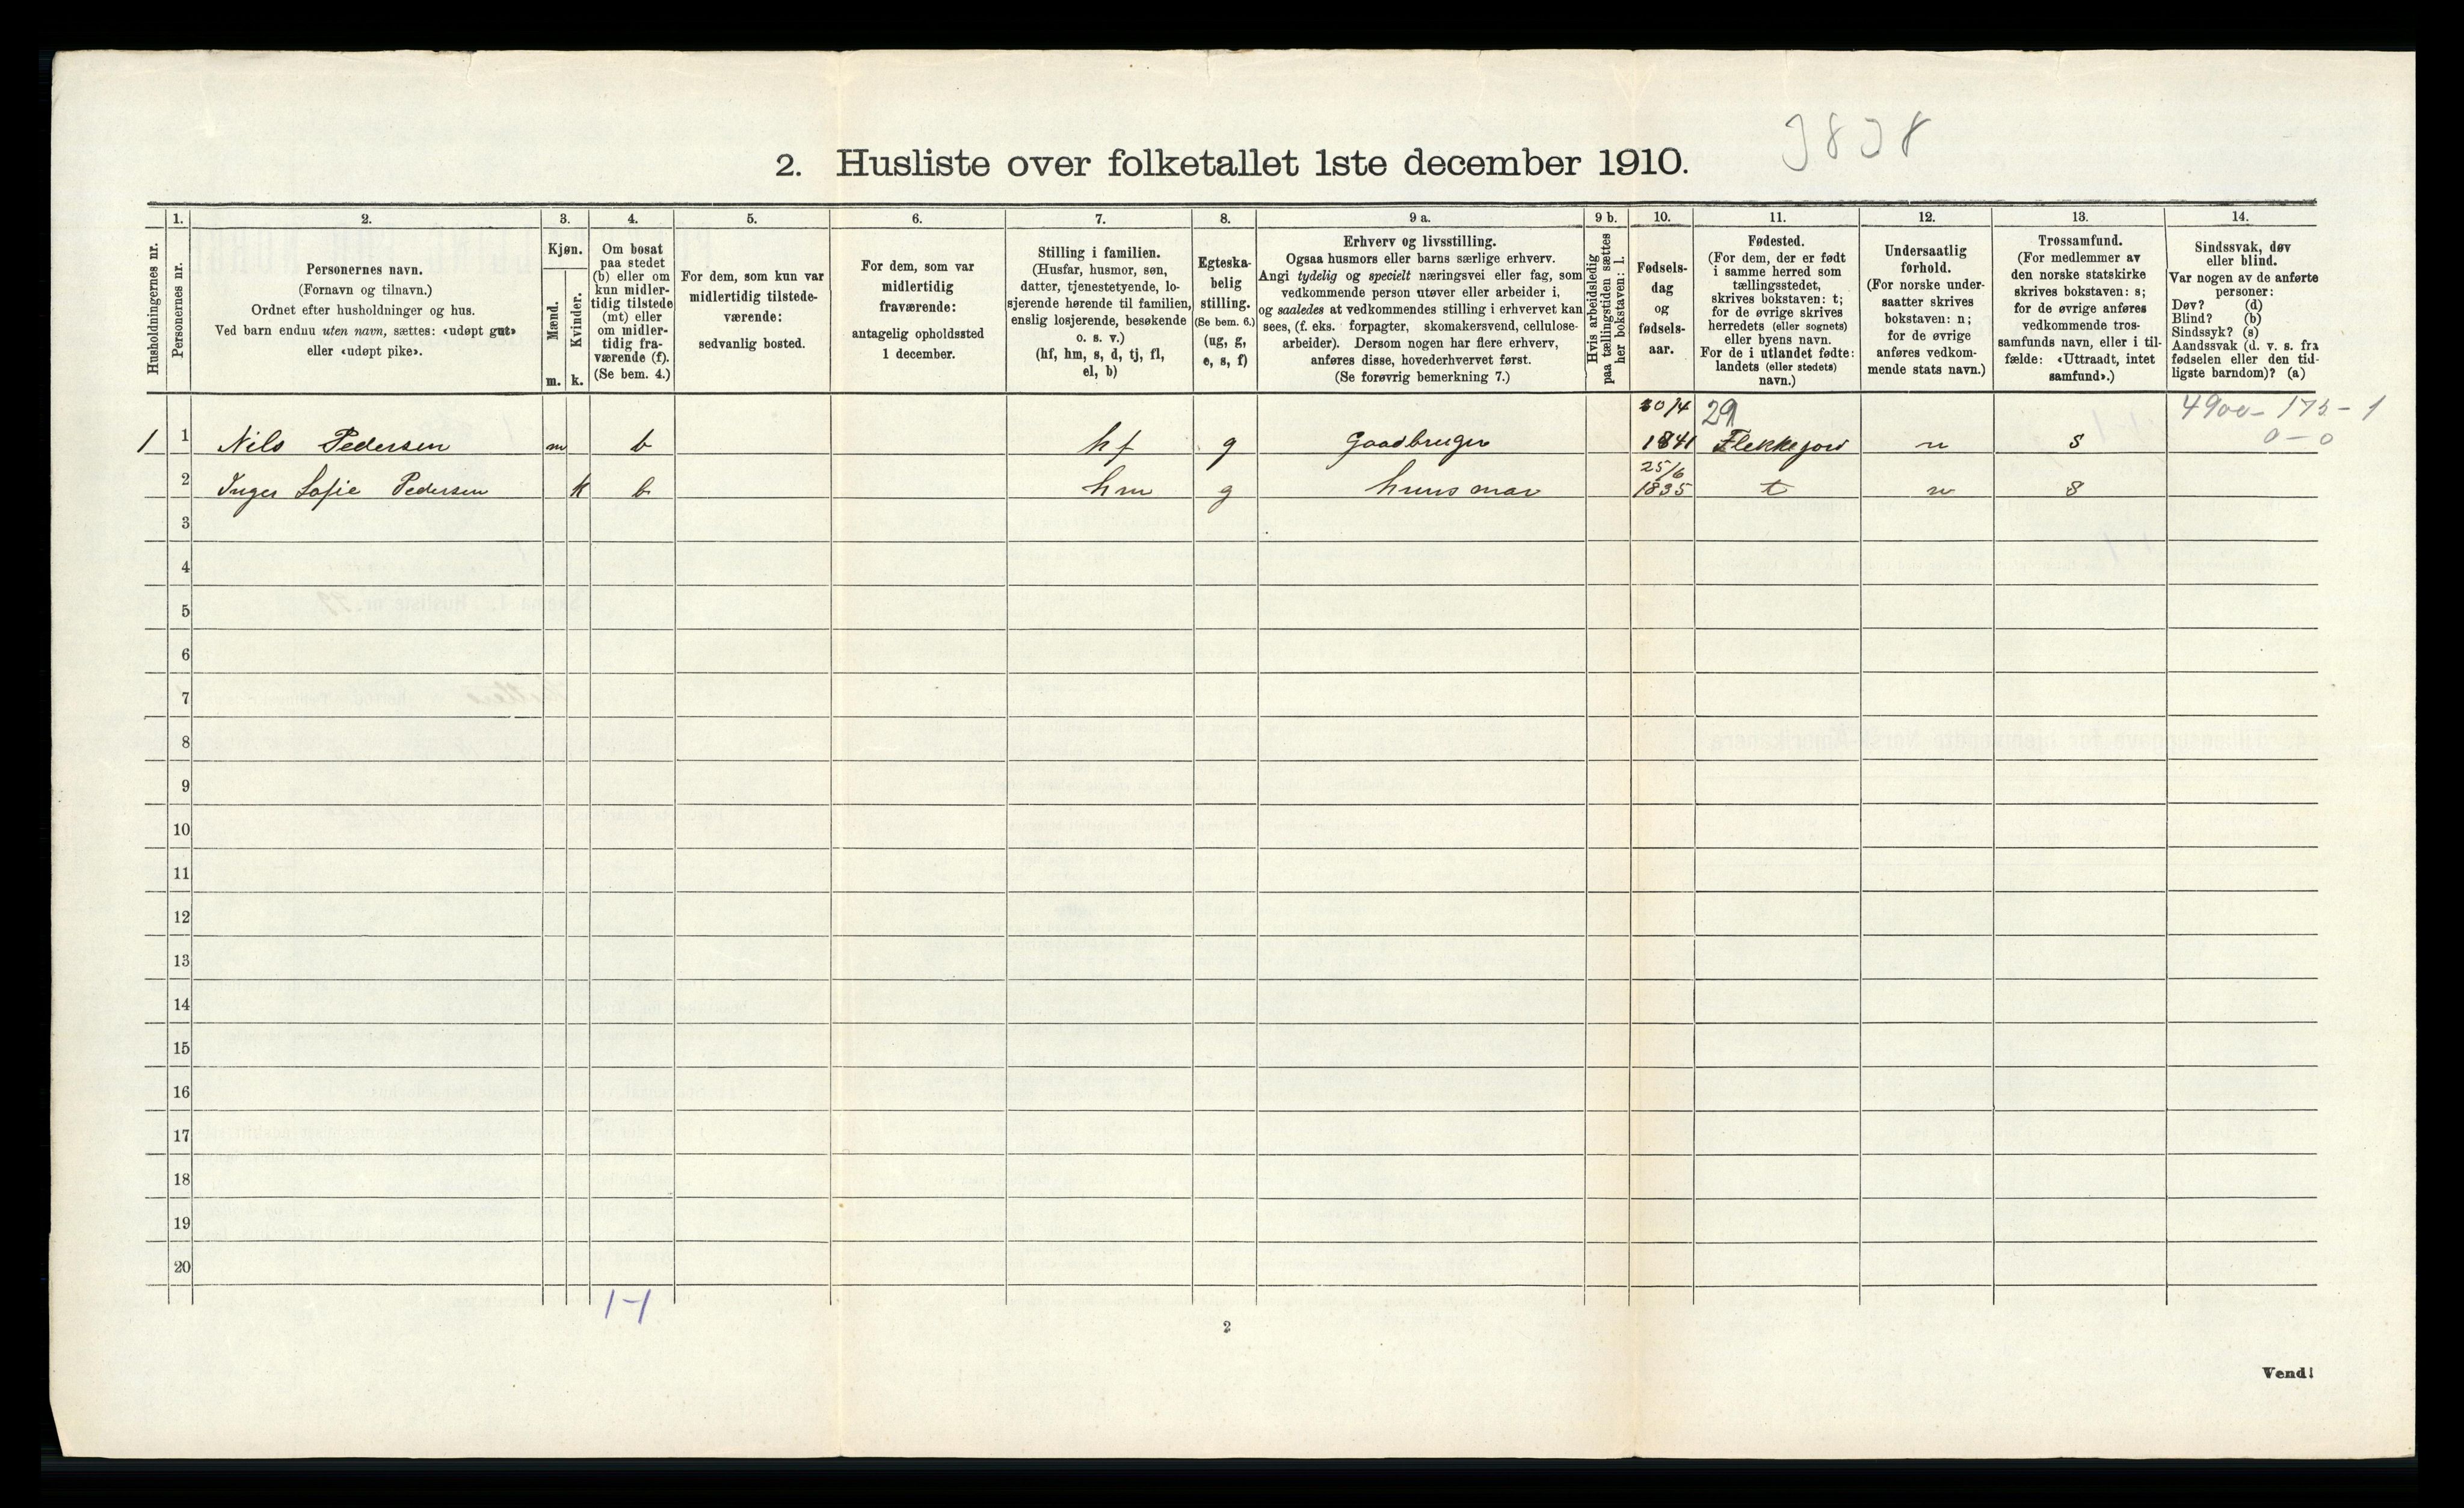 3838
2. Husliste over folketallet 1ste december 1910.
Husholdningernes nr.
1.
Personernes nr.
2.
Personernes navn.
(Fornavn og tilnavn.)
Ordnet efter husholdninger og hus.
Ved barn endnu uten navn, sættes: «udøpt gut»
eller «udøpt pike».
3.
Kjøn.
Mænd.
Kvinder.
m. k.
4.
Om bosat
paa stedet
(b) eller om
kun midler-
tidig tilstede
(mt) eller
om midler-
tidig fra-
værende (f).
(Se bem. 4.)
5.
For dem, som kun var
midlertidig tilstede-
værende:
sedvanlig bosted.
6.
For dem, som var
midlertidig
fraværende:
antagelig opholdssted
1 december.
7.
Stilling i familien.
(Husfar, husmor, søn,
datter, tjenestetyende, lo-
sjerende hørende til familien,
enslig losjerende, besøkende
o. s. v.)
(hf, hm, s, d, tj, fl,
el, b)
8.
Egteska-
belig
stilling.
(Se bem. 6.)
(ug, g,
e, s, f)
9 a.
Erhverv og livsstilling.
Ogsaa husmors eller barns særlige erhverv.
Angi tydelig og specielt næringsvei eller fag, som
vedkommende person utøver eller arbeider i,
og saaledes at vedkommendes stilling i erhvervet kan
sees, (f. eks. forpagter, skomakersvend, cellulose-
arbeider). Dersom nogen har flere erhverv,
anføres disse, hovederhvervet først.
(Se forøvrig bemerkning 7.)
9 b.
Hvis arbeidsledig
paa tællingstiden sættes
her bokstaven: l.
10.
Fødsels-
dag
og
fødsels-
aar.
11.
Fødested.
(For dem, der er født
i samme herred som
tællingsstedet,
skrives bokstaven: t;
for de øvrige skrives
herredets (eller sognets)
eller byens navn.
For de i utlandet fødte:
landets (eller stedets)
navn.)
12.
Undersaatlig
forhold.
(For norske under-
saatter skrives
bokstaven: n;
for de øvrige
anføres vedkom-
mende stats navn.)
13.
Trossamfund.
(For medlemmer av
den norske statskirke
skrives bokstaven: s;
for de øvrige anføres
vedkommende tros-
samfunds navn, eller i til-
fælde: «Uttraadt, intet
samfund».)
14.
Sindssvak, døv
eller blind.
Var nogen av de anførte
personer:
Døv? (d)
Blind? (b)
Sindssyk? (s)
Aandssvak (d. v. s. fra
fødselen eller den tid-
ligste barndom)? (a)
29 4900 - 175 - 1
0 - 0
1 1 Nils Pedersen m b hf g Gaadbruger 20/4 1841 Flekkefjord n s
2 Inger Sofie Pedersen k b hm g huusmor 25/6 1835 t n s
3
4
5
6
7
8
9
10
11
12
13
14
15
16
17
18
19
20
1-1
2
Vend!